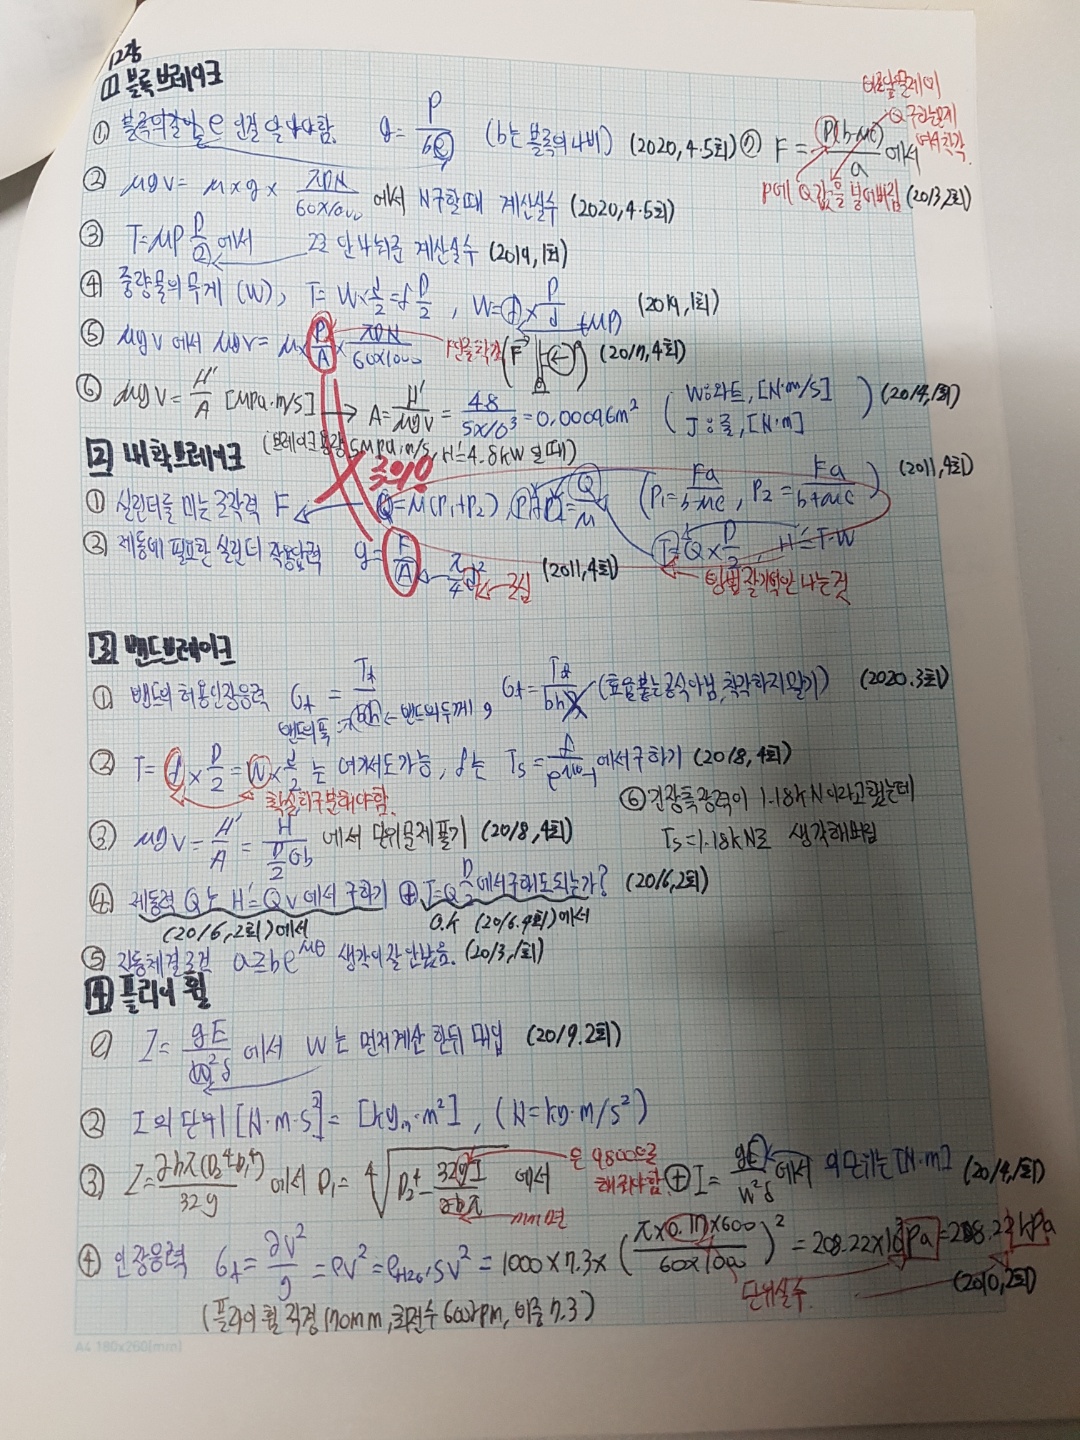 12장
[1] 블록브레이크
① 블록의길이 e 인걸 알아야함. q = P/be (b는 블록의 너비) (2020, 4·5회)
⑦ F = P(b-μc)/a 에서
Q구하는문제
여서 착각
P에 Q값을 넣어버림 (2013, 2회)
② μqv = μ×q× πDN/60×1000 에서 N구할때 계산실수 (2020, 4·5회)
③ T=μP D/2 에서 2로 안나눠준 계산실수 (2019, 1회)
④ 중량물의 무게 (W), T= W×d/2 = f D/2, W = f × D/d (2019, 1회)
(μP)
⑤ μqv 에서 μqv= μ× P/A × πDN/60×1000 F (2017, 4회)
⑥ μqv = H'/A [MPa·m/s] → A= H'/μqv = 4.8/5×10³ = 0.00096m² (W:와트, [N·m/s] J:줄, [N·m]) (2014, 1회)
(브레이크용량 5MPa·m/s, H'=4.8kW 일때)
[2] 내확브레이크
주의
① 실린더를 미는 조작력 F Q=μ(P₁+P₂), P₁+P₂= Q/μ (P₁= Fa/b-μc, P₂= Fa/b+μc) (2011, 4회)
T=Q×D/2, H'=T·W
② 제동에 필요한 실린더 작용압력 q= F/A π/4 d² 조심 (2011, 4회)
방법 잘 기억안 나는것
[3] 밴드브레이크
① 밴드의 허용인장응력 σt = Tt/bh ← 밴드의 두께, σt = Tt/bhη (효율붙는 공식아님, 착각하지말기) (2020. 3회)
밴드의폭
② T= f × D/2 = W × d/2 는 여기서도가능, f는 Ts = f/e^μθ-1 에서구하기 (2018, 4회)
확실히구분해야함.
⑥ 긴장측장력이 1.18kN이라고했는데
Ts=1.18kN로 생각해버림
③ μqv = H'/A = H/(D/2 θb) 에서 단위문제풀기 (2018, 4회)
④ 제동력 Q는 H'=Qv 에서 구하기 ⊕ T=Q D/2 에서구해도되는가? (2016, 2회)
(2016, 2회)에서 O.K (2016.4회)에서
⑤ 자동체결조건 a≥be^μθ 생각이 잘 안났음. (2013, 1회)
[4] 플라이 휠
① I = gE/w²δ 에서 w는 먼저계산 한뒤 대입 (2019. 2회)
② I 의 단위 [N·m·s²] = [kg·m²], (N=kg·m/s²)
③ I = 에서 D₁= 에서 은 9800으로
해줘야함
mm면
⊕ I= gE/w²δ 에서 의 단위는 [N·m] (2014, 1회)
④ 인장응력 σt = γv²/g = ρv² = ρH₂O·Sv² = 1000×7.3× (π×0.17×600/60×1000)² = 208.22×10³Pa = 208.22kPa
단위실수. (2010, 2회)
(플라이 휠 직경 170mm, 회전수 600rpm, 비중 7.3)
A4 180x260(mm)